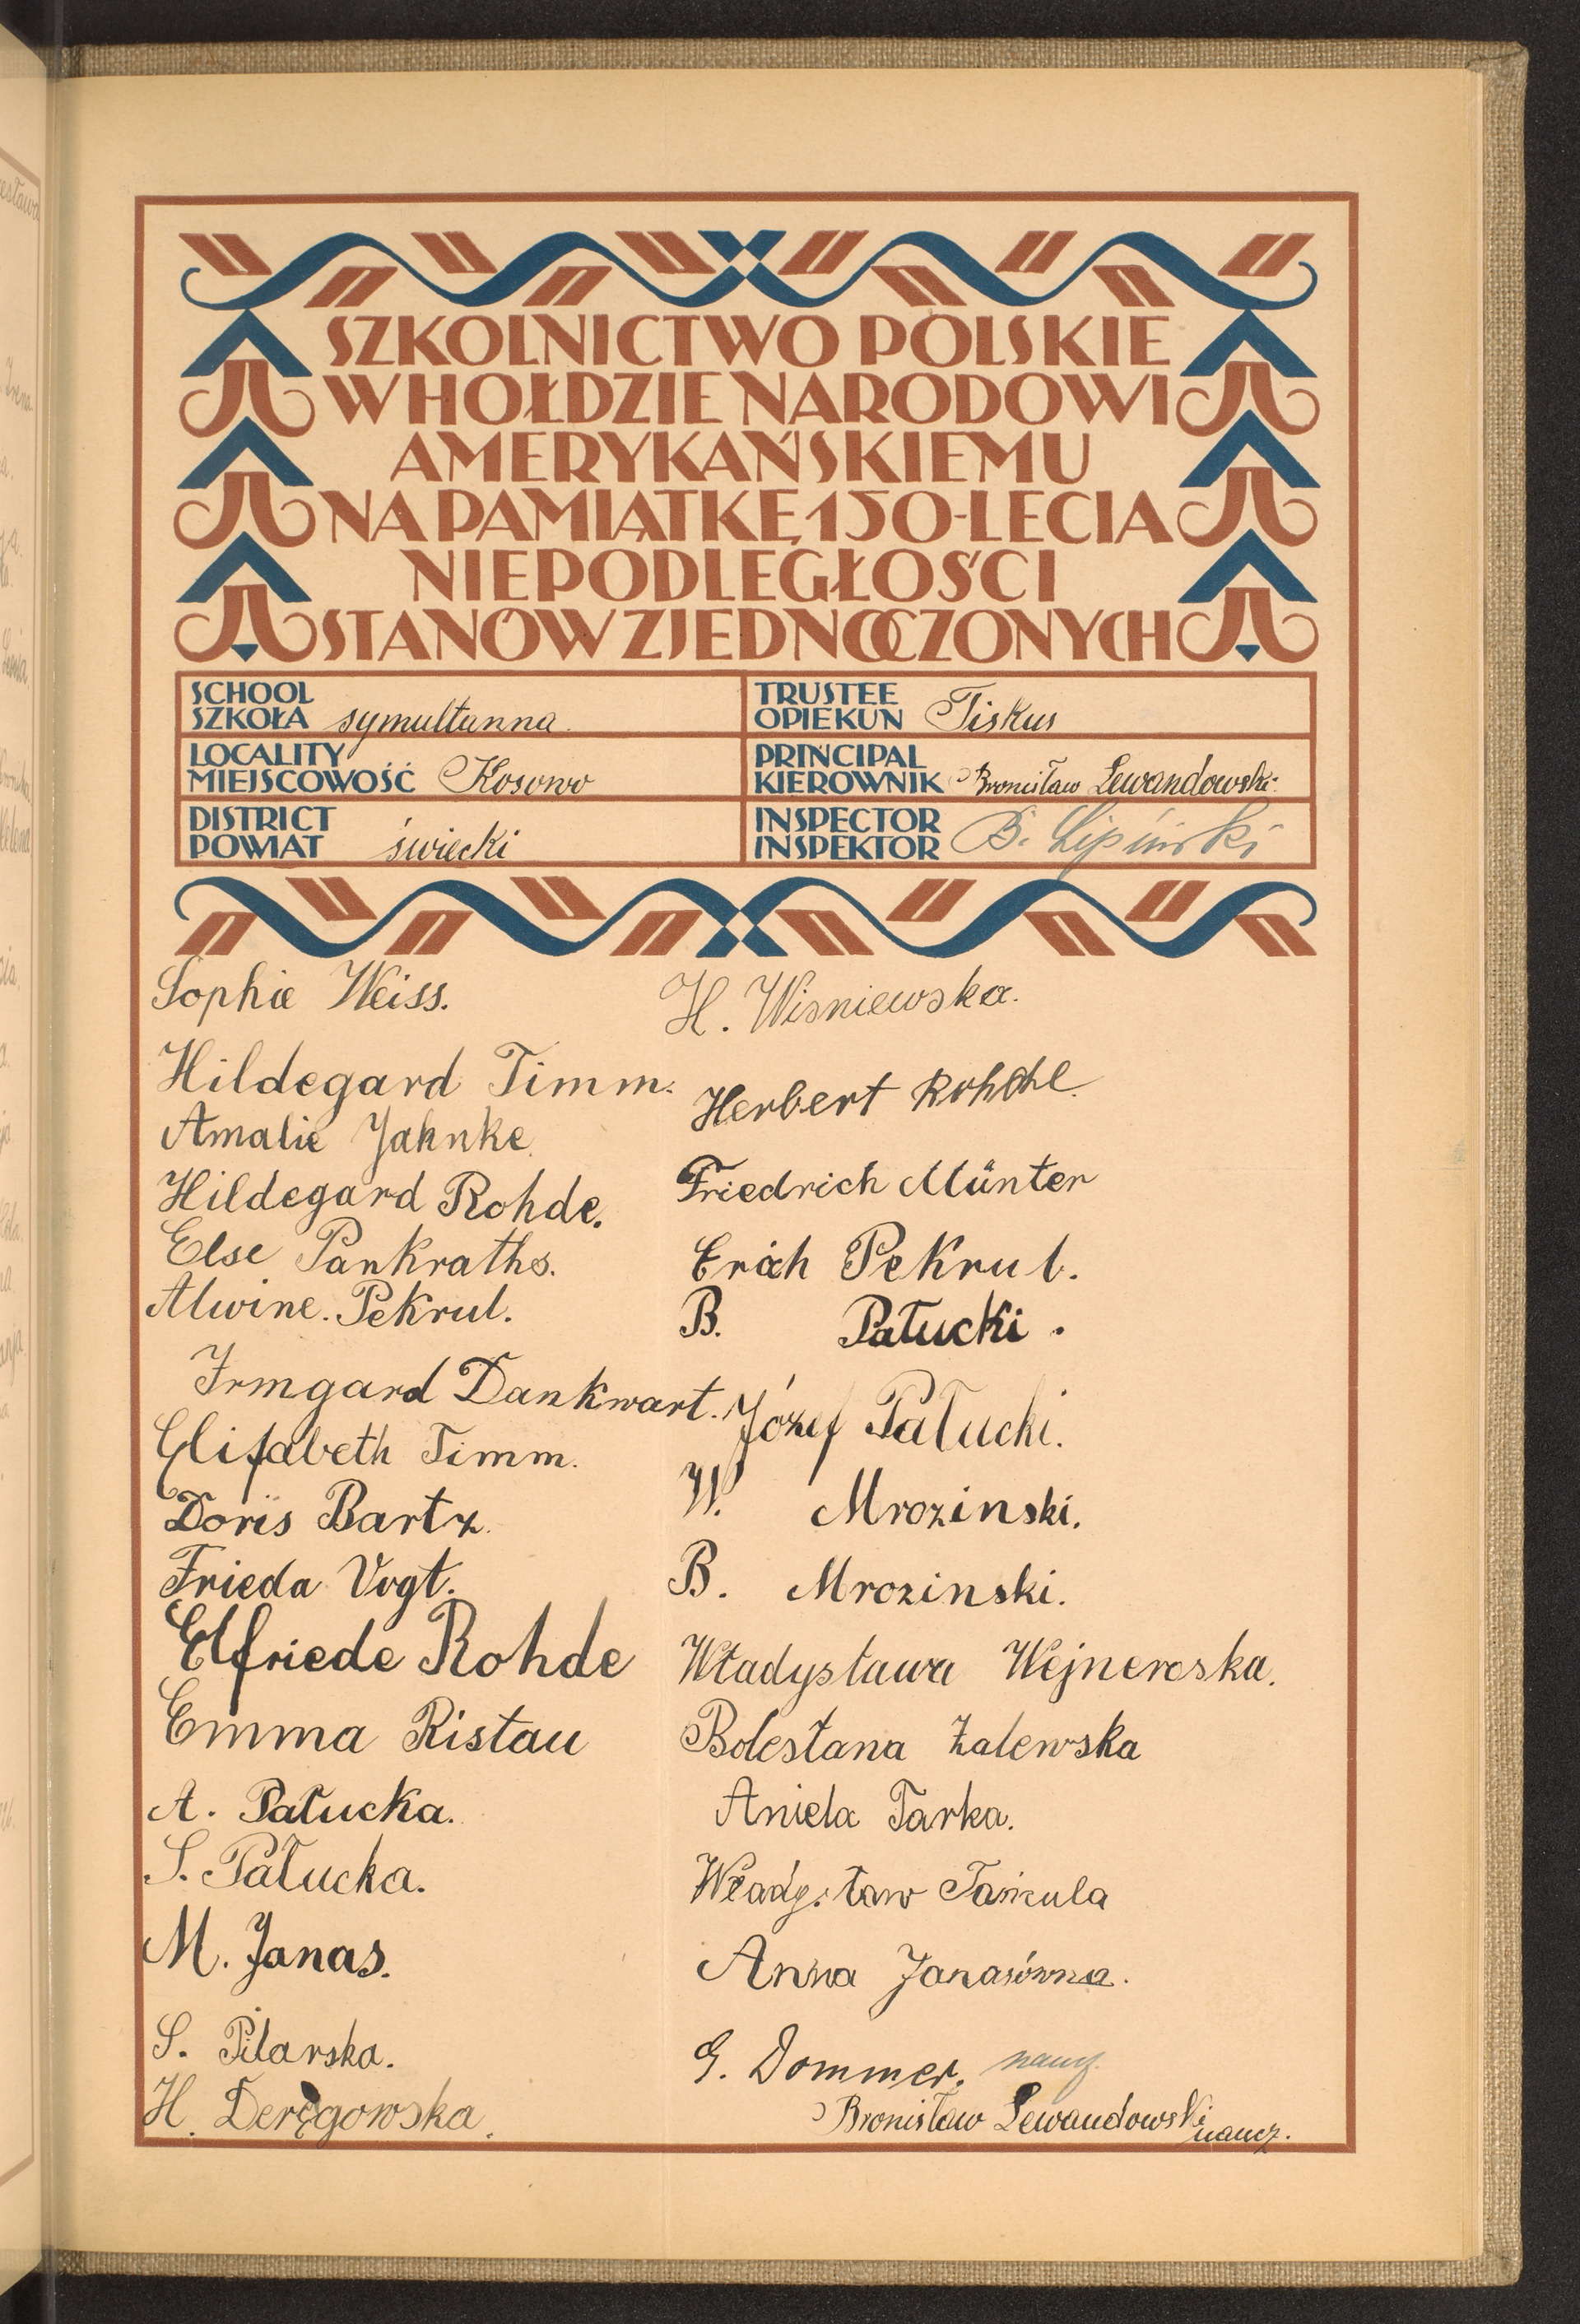 SZKOLNICTWO POLSKIE
W HOŁDZIE NARODOWI
AMERYKAŃSKIEMU
NA PAMIĄTKĘ 150-LECIA
NIEPODLEGŁOŚCI
STANÓW ZJEDNOCZONYCH
SCHOOL
SZKOŁA symultanna.
TRUSTEE
OPIEKUN Tiskus
LOCALITY
MIEJSCOWOŚĆ Kosowo
PRINCIPAL
KIEROWNIK Bronisław Lewandowski
DISTRICT
POWIAT świecki
INSPECTOR
INSPEKTOR B. Lipiński
Sophie Weiss.
Hildegard Timm.
Amalie Jahnke.
Hildegard Rohde.
Else Pankraths.
Alwine. Pekrul.
Irmgard Dankwart.
Elisabeth Timm.
Doris Bartz.
Frieda Vogt.
Elfriede Rohde
Emma Ristau
A. Pałucka.
S. Pałucka.
M. Janas.
S. Pilarska.
H. Deręgowska.
H. Wisniewska.
Herbert
Friedrich Münter
Erich Pekrul.
B. Pałucki.
Józef Pałucki.
W. Mrozinski.
B. Mrozinski.
Władysława
Zalewska
Aniela Tarka.
Władysław
Anna Janasówna.
G. Dommer. naucz.
Bronisław Lewandowski
naucz.